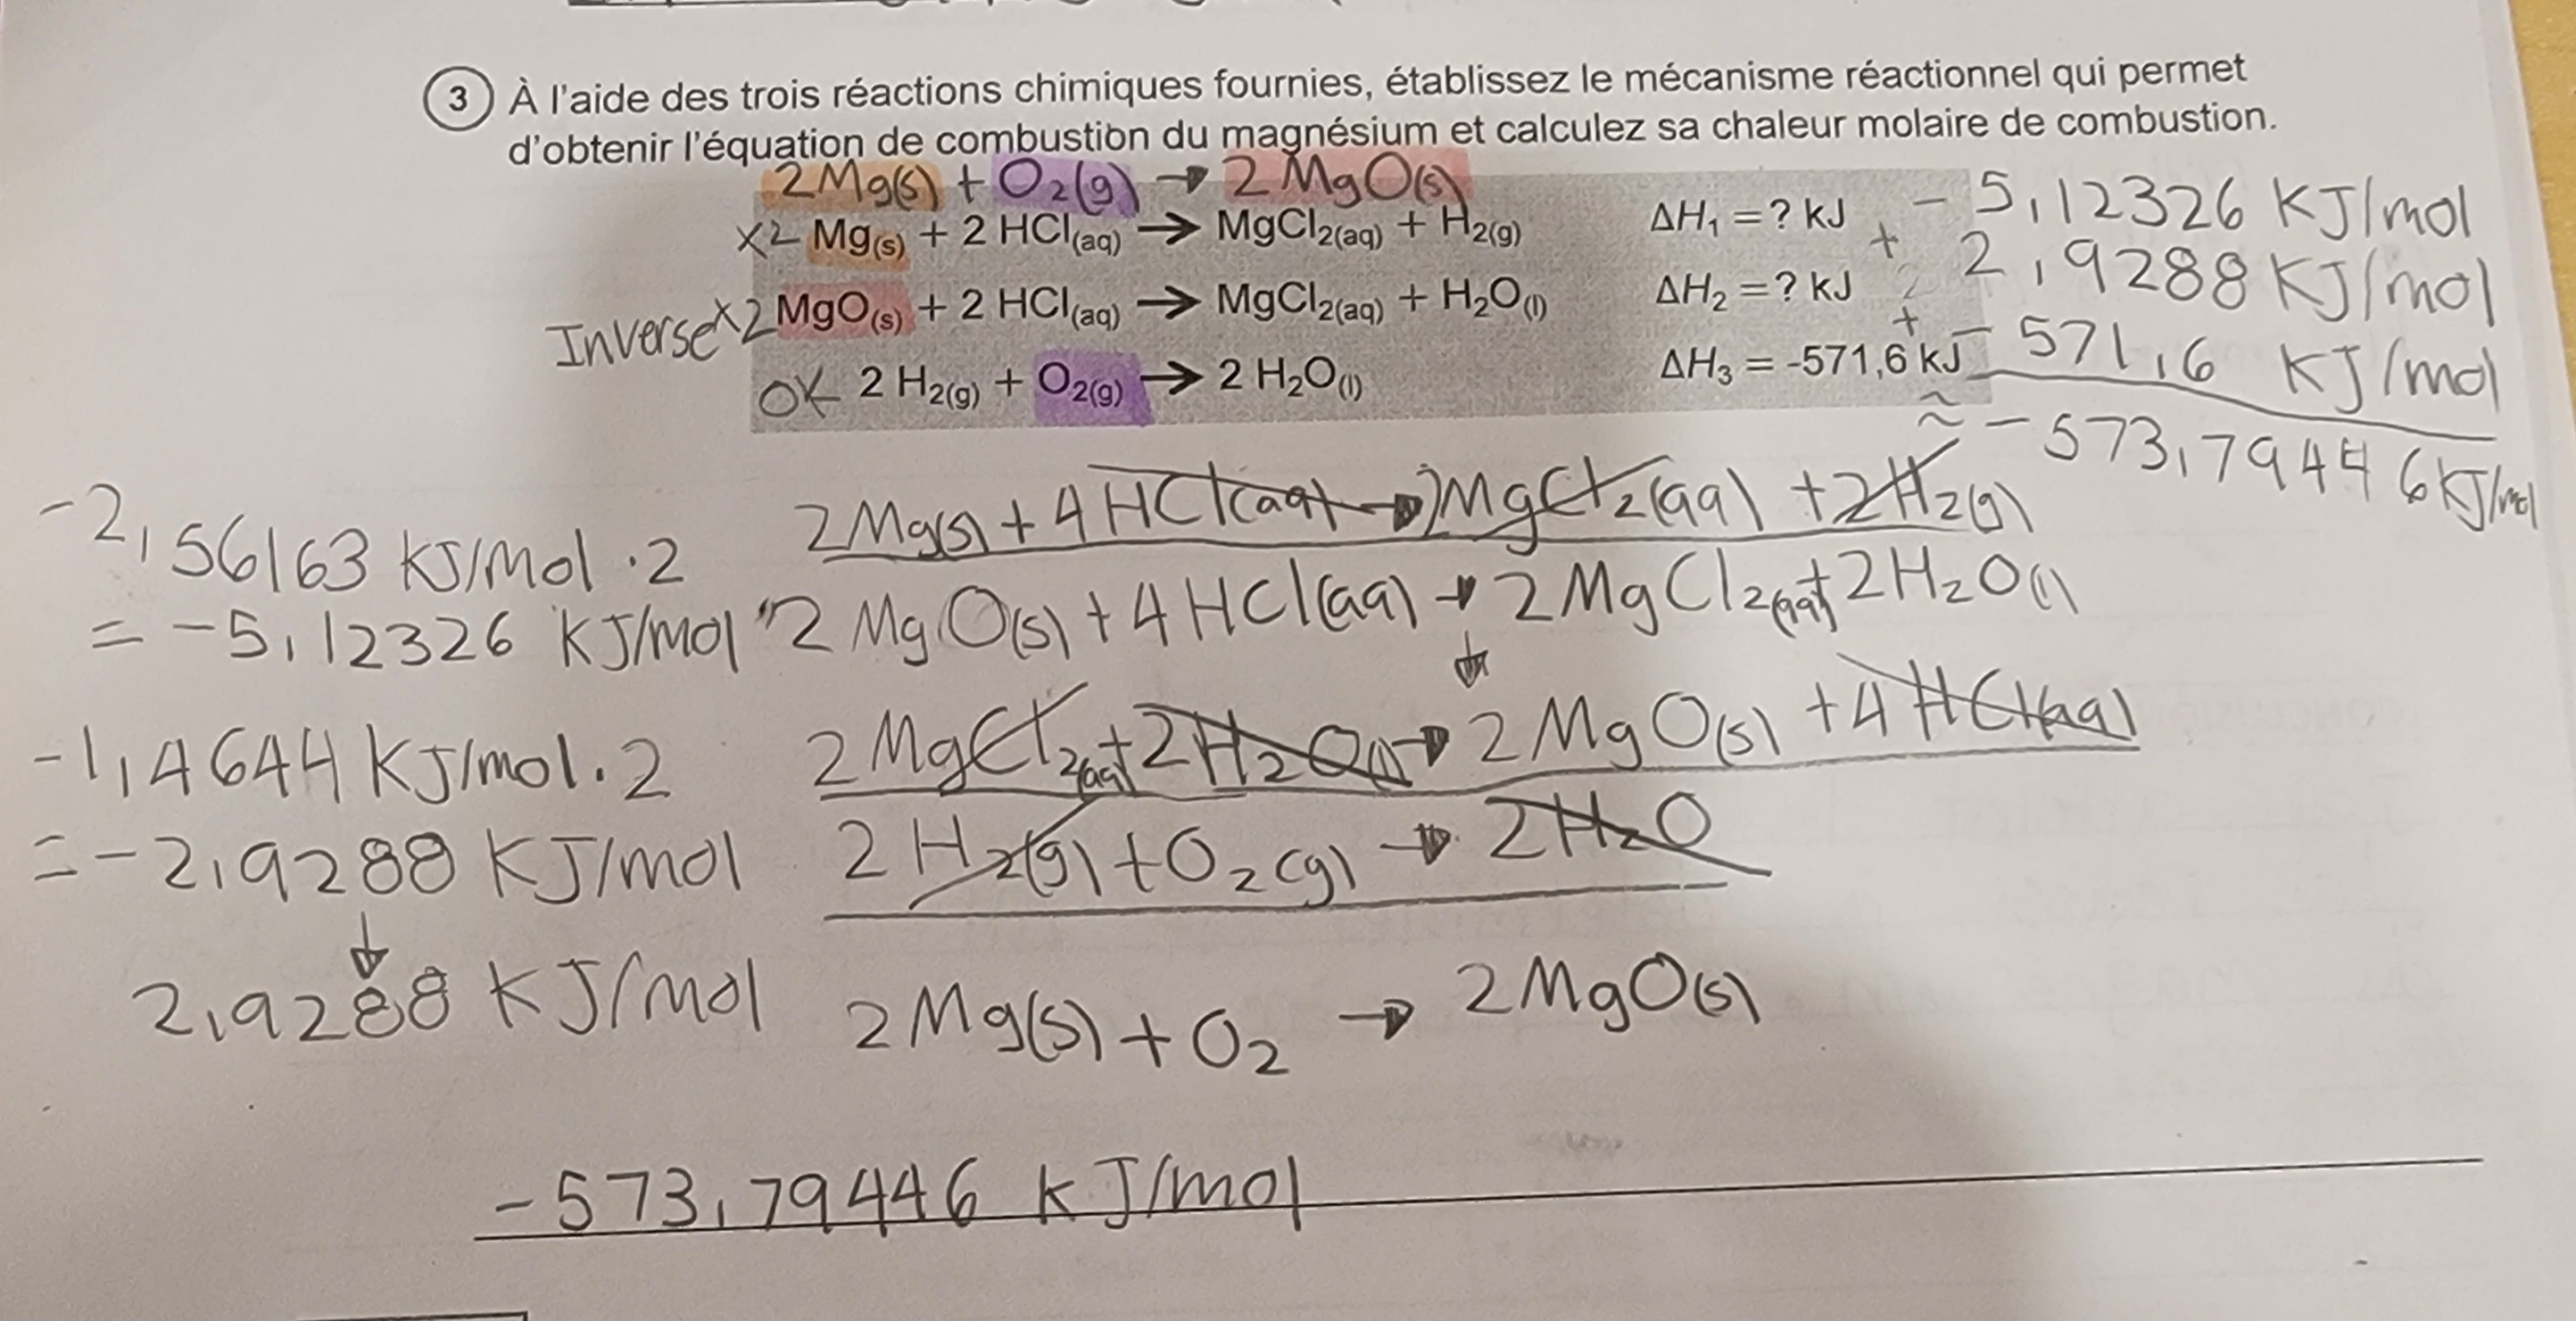 3 À l'aide des trois réactions chimiques fournies, établissez le mécanisme réactionnel qui permet
d'obtenir l'équation de combustion du magnésium et calculez sa chaleur molaire de combustion.
2Mg(s) + O₂(g) → 2MgO(s)
x2 Mg(s) + 2 HCl(aq) → MgCl₂(aq) + H₂(g) ΔH₁ = ? kJ
Inverse x2 MgO(s) + 2 HCl(aq) → MgCl₂(aq) + H₂O(l) ΔH₂ = ? kJ
OK 2 H₂(g) + O₂(g) → 2 H₂O(l) ΔH₃ = -571,6 kJ
-5,12326 KJ/mol
+ 2,9288 KJ/mol
+ -571,6 KJ/mol
≈ -573,79446 KJ/mol
-2,56163 KJ/mol · 2
= -5,12326 KJ/mol
-1,4644 KJ/mol · 2
= -2,9288 KJ/mol
↓
2,9288 KJ/mol
2Mg(s) + 4HCl(aq) → 2MgCl₂(aq) + 2H₂(g)
2MgO(s) + 4HCl(aq) → 2MgCl₂(aq) + 2H₂O(l)
↓
2MgCl₂(aq) + 2H₂O(l) → 2MgO(s) + 4HCl(aq)
2H₂(g) + O₂(g) → 2H₂O
2Mg(s) + O₂ → 2MgO(s)
-573,79446 kJ/mol